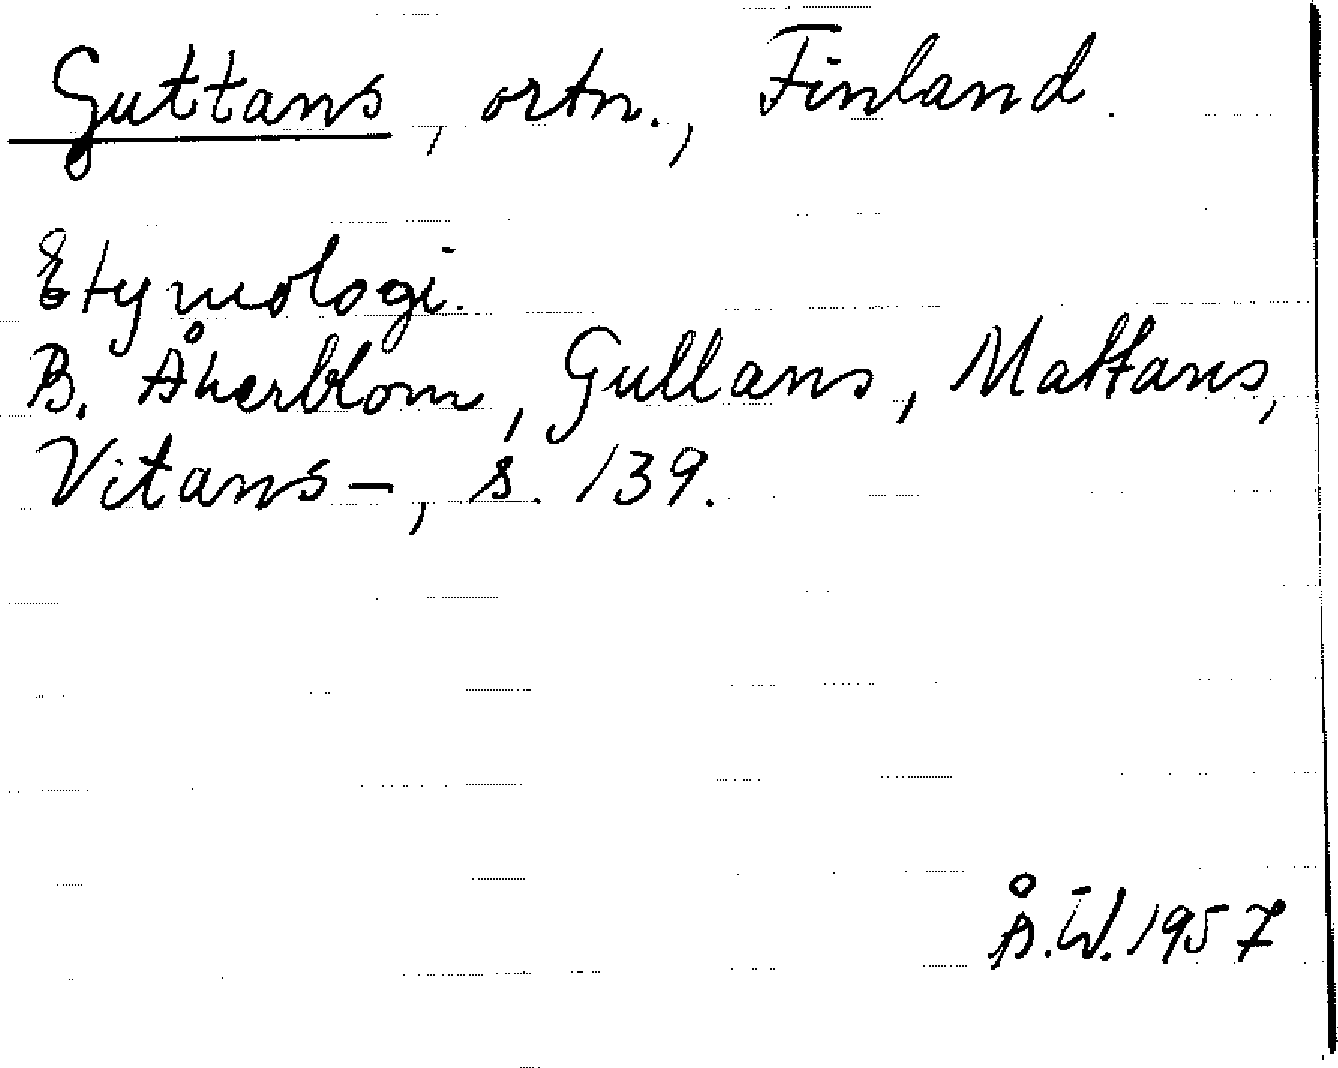 Guttans, ortn., Finland.
Etymologi.
B. Åkerblom, Gullans, Mattans,
Vitans –, s. 139.
Å.W. 1957